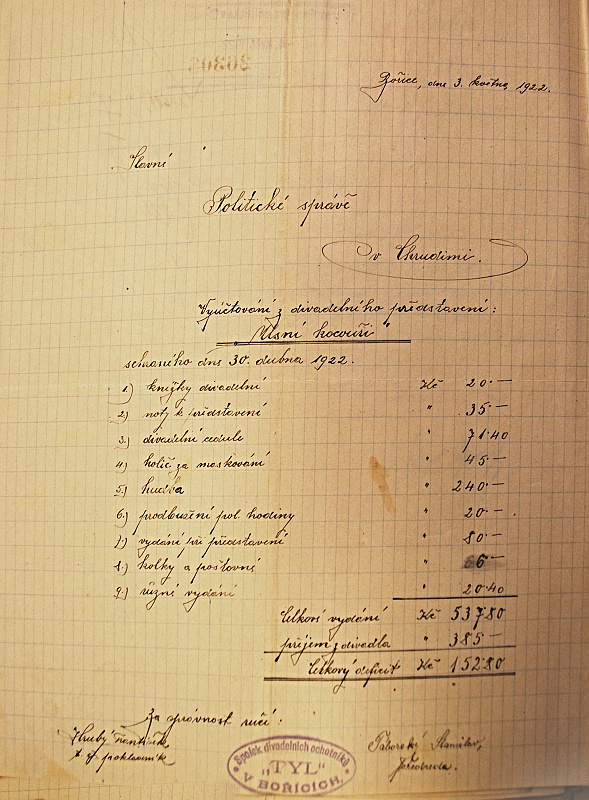 Bořice, dne 3. května 1922.
Slavné
Politické správě
v Chrudimi.
Vyúčtování z divadelního představení:
"Vlsní kocouři"
sehraného dne 30. dubna 1922.
1.) knížky divadelní Kč 20.—
2.) noty k představení " 35.—
3.) divadelní cedule " 71.40
4.) holič za maskování " 45.—
5.) hudba " 240.—
6.) prodloužení pol. hodiny " 20.—
7.) vydání při představení " 80.—
8.) kolky a poštovné " 6.—
9.) různé vydání " 20.40
Celkové vydání Kč 537.80
příjem z divadla " 385.—
Celkový deficit Kč 152.80
Za správnost ručí:
Hrubý František
t. č. pokladník
Táborský Stanislav,
předseda.
Spolek divadelních ochotníků
"TYL"
V BOŘICÍCH.